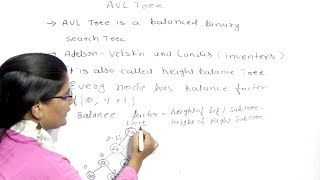 AVL Tree
→ AVL Tree is a balanced binary
Search Tree
→ Adelson-Velskii and Landis (inventors)
It is also called height balance Tree
Every node has balance factor
{0, -1 +1}
Balance factor = height of left Subtree -
height of Right Subtree